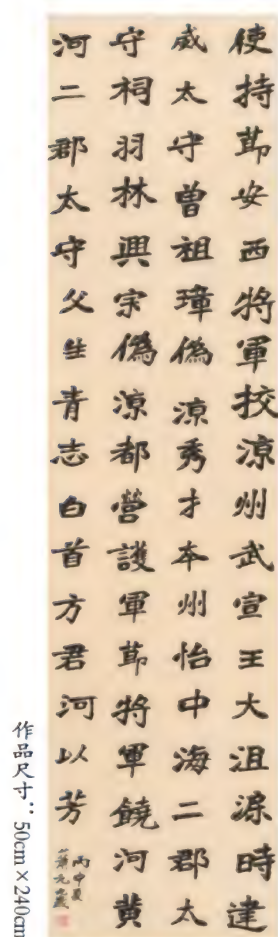 使持節安西將軍校涼州武宣王大沮渠時建
威太守曾祖璋偽涼秀才本州怡中海二郡太
守祠羽林興宗偽涼都營護軍節將軍饒河黃
河二郡太守父生青志白首方君河以芳
丙申夏
作品尺寸：50cm×240cm